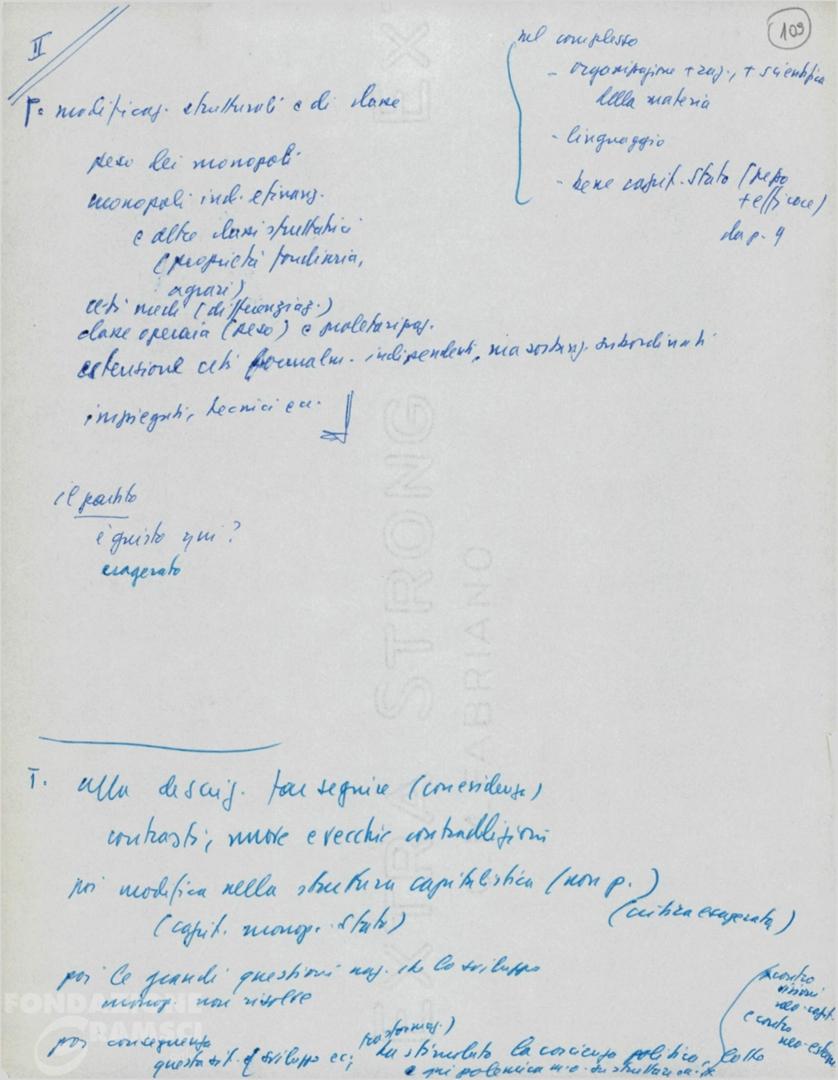 109
II
nel complesso
- organizzazione + raz., + scientifica
della materia
- linguaggio
- bene capit. Stato (peso
+ efficace)
da p. 4
modificaz. strutturali e di classe
peso dei monopoli
monopoli ind. e finanz.
e altre classi sfruttatrici
(proprietà fondiaria,
agrari)
ceti medi (differenziaz.)
classe operaia (peso) e proletarizzaz.
estensione ceti formalm. indipendenti, ma sostanz. subordinati
impiegati, tecnici ecc.
il partito
è giusto qui?
esagerato
EXTRA STRONG
FABRIANO
I. alla descriz. far seguire (con evidenza)
contrasti, nuove e vecchie contraddizioni
poi modifica nella struttura capitalistica (non p.)
(critica esagerata)
(capit. monop. Stato)
poi le grandi questioni naz. che lo sviluppo
monop. non risolve
contro
visioni
neo-capit.
e contro
poi conseguenza
trasformaz.)
questa sit. di sviluppo ec; ha stimolato la coscienza politica, lotte
e qui polemica
FONDAZIONE
GRAMSCI